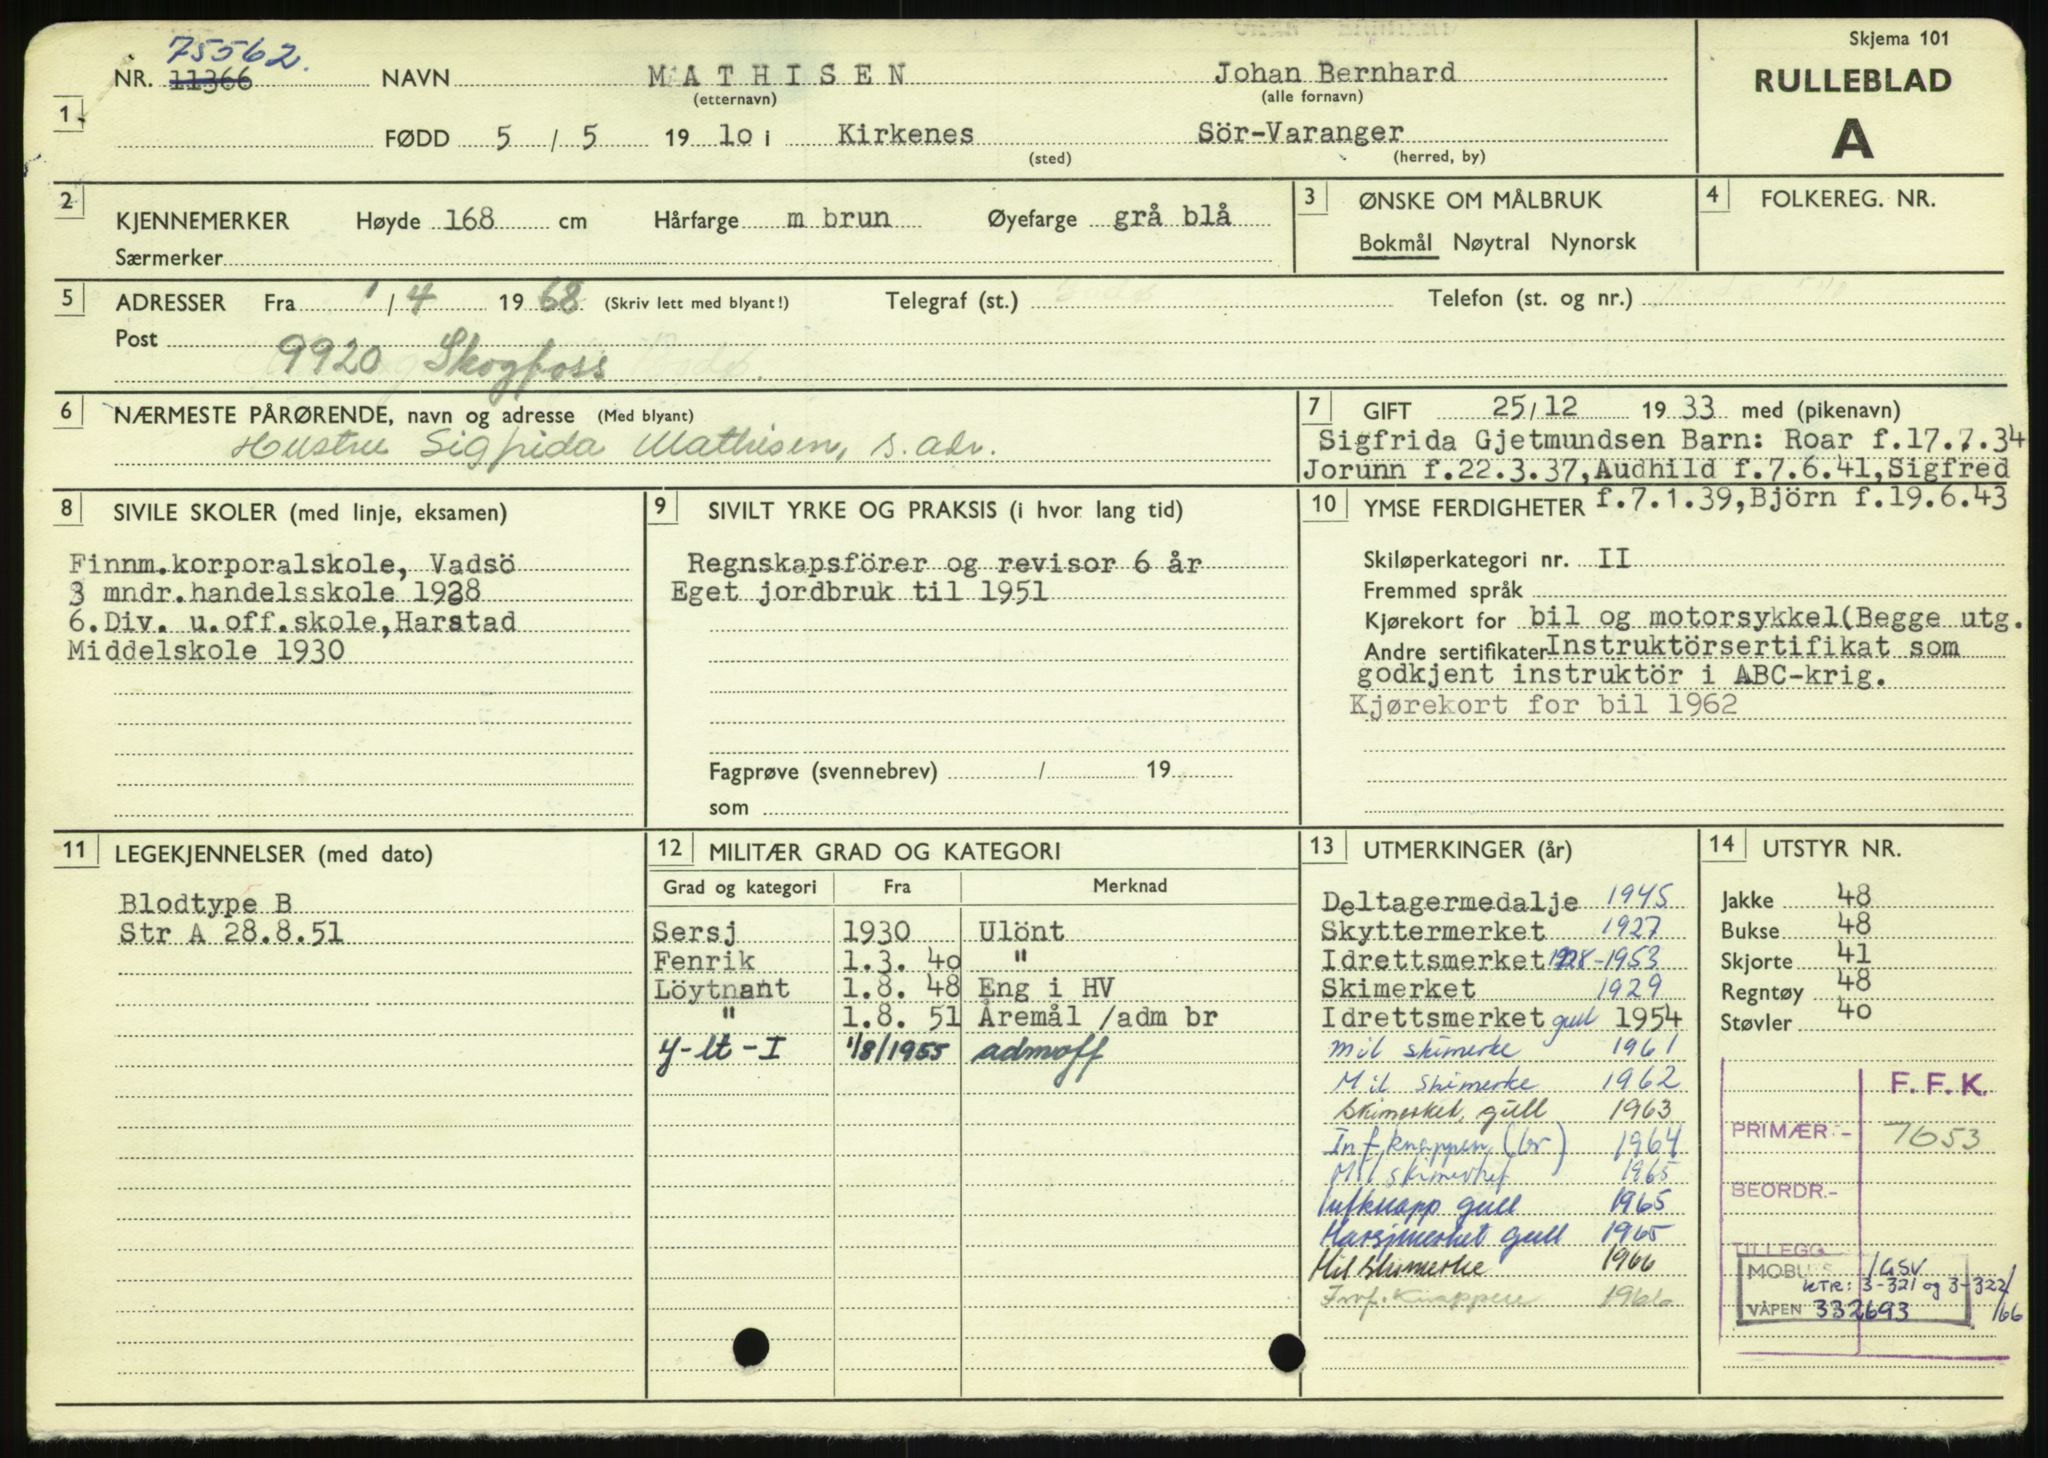 Skjema 101
RULLEBLAD
A
NR. 11366 75562.
NAVN MATHISEN Johan Bernhard
(etternavn) (alle fornavn)
1
FØDD 5 / 5 1910 i Kirkenes Sör-Varanger
(sted) (herred, by)
2 KJENNEMERKER Høyde 168 cm Hårfarge m brun Øyefarge grå blå
Særmerker
3 ØNSKE OM MÅLBRUK
Bokmål Nøytral Nynorsk
4 FOLKEREG. NR.
5 ADRESSER Fra 1/4 1968 (Skriv lett med blyant!) Telegraf (st.) Telefon (st. og nr.)
Post
9920 Skogfoss
6 NÆRMESTE PÅRØRENDE, navn og adresse (Med blyant)
Hustru Sigfrida Mathisen, s. adr.
7 GIFT 25/12 1933 med (pikenavn)
Sigfrida Gjetmundsen Barn: Roar f.17.7.34
Jorunn f.22.3.37,Audhild f.7.6.41,Sigfred
f.7.1.39,Björn f.19.6.43
8 SIVILE SKOLER (med linje, eksamen)
Finnm.korporalskole, Vadsö
3 mndr.handelsskole 1928
6.Div. u.off.skole,Harstad
Middelskole 1930
9 SIVILT YRKE OG PRAKSIS (i hvor lang tid)
Regnskapsförer og revisor 6 år
Eget jordbruk til 1951
Fagprøve (svennebrev) / 19
som
10 YMSE FERDIGHETER
Skiløperkategori nr. II
Fremmed språk
Kjørekort for bil og motorsykkel(Begge utg.
Andre sertifikater Instruktörsertifikat som
godkjent instruktör i ABC-krig.
Kjørekort for bil 1962
11 LEGEKJENNELSER (med dato)
Blodtype B
Str A 28.8.51
12 MILITÆR GRAD OG KATEGORI
Grad og kategori Fra Merknad
Sersj 1930 Ulönt
Fenrik 1.3. 40 "
Löytnant 1.8. 48 Eng i HV
" 1.8. 51 Åremål /adm br
Y-lt-I 1/8/1955 admoff
13 UTMERKINGER (år)
Deltagermedalje 1945
Skyttermerket 1927
Idrettsmerket 1928-1953
Skimerket 1929
Idrettsmerket gull 1954
Mil skimerke 1961
Mil skimerke 1962
Skimerket, gull 1963
Inf.knappen (br) 1964
Mil skimerket 1965
Infknapp gull 1965
Marsjmerket gull 1965
Mil skimerke 1966
Inf. Knappen 1966
14 UTSTYR NR.
Jakke 48
Bukse 48
Skjorte 41
Regntøy 48
Støvler 40
F. F. K.
PRIMÆR:- 7653
BEORDR.-
TILLEGG
MOBU /GSV
KTR: 3-321 og 3-322/
VÅPEN 332693 /66